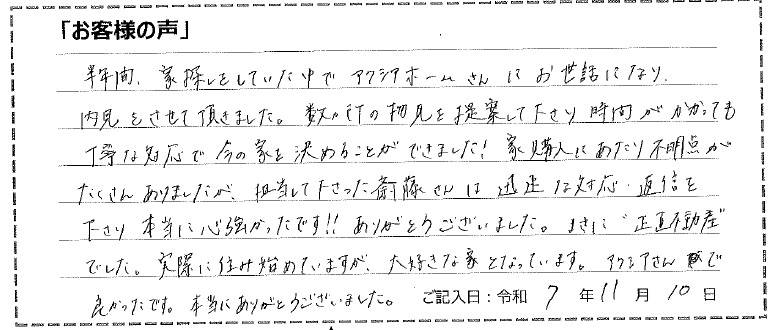 「お客様の声」
半年間、家探しをしていた中でアクシアホームさんにお世話になり、
内見をさせて頂きました。数か所の物見を提案して下さり時間がかかっても
丁寧な対応で今の家を決めることができました！家購入にあたり不明点が
たくさんありましたが、担当して下さった齋藤さんは迅速な対応・返信を
下さり本当に心強かったです!!ありがとうございました。まさに"正直不動産"
でした。実際に住み始めていますが、大好きな家となっています。アクシアさんで
良かったです。本当にありがとうございました。 ご記入日：令和 7 年 11 月 10 日